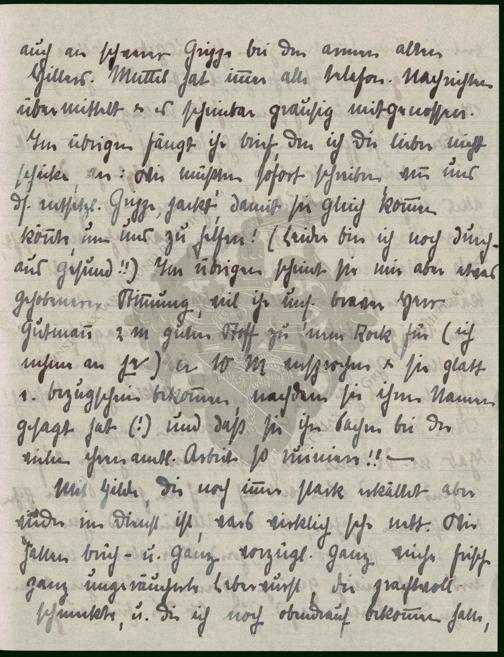 auch an schwerer Grippe bei den armen alten
Hillers. Muttel hat immer alle telefon. Nachrichten
übermittelt u. es scheinbar grausig mitgenossen.
Im übrigen fängt ihr Brief, den ich Dir lieber nicht
schicke, an: Wir müssten sofort schreiben wenn uns
d. entsetzl. Grippe „packt“, damit sie gleich kommen
könnte, um uns zu helfen! (Leider bin ich noch durch-
aus gesund!!) Im übrigen scheint sie mir aber etwas
gehobenerer Stimmung, weil ihr unf. braver Herr
Gutmann 2 m guten Stoff zu 'nem Rock für (ich
nehme an Hr) er 10 M versprochen & sie glatt
1. Bezugschein bekommen, nachdem sie ihren Namen
gesagt hat (!) und daß sie ihre Sachen bei der
vielen ehrenamtl. Arbeit so ruiniere!! —
Mit Hilde, die noch immer stark erkältet aber
wieder im Dienst ist, wars wirklich sehr nett. Wir
hatten Brief- u. ganz vorzügl. ganz weiche frische
ganz ungeräucherte Leberwurst, die prachtvoll
schmeckte, u. die ich noch obendrauf bekommen hatte,